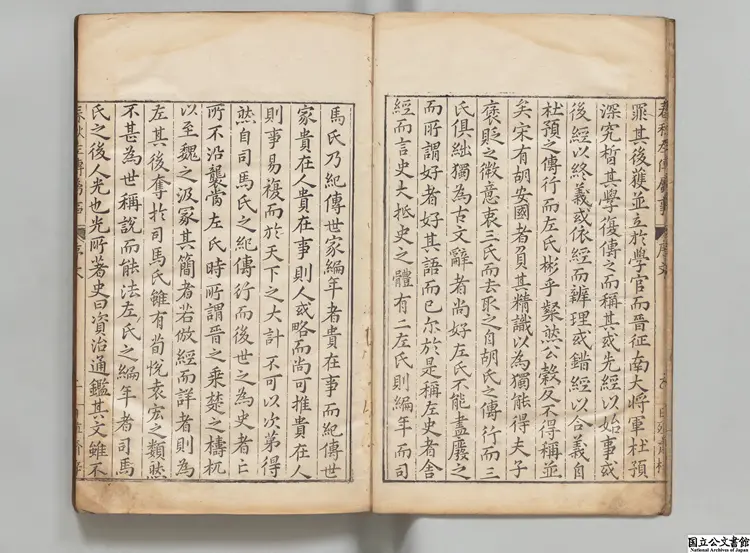 春秋左傳屬事
罪其後獲並立於學官而晉征南大將軍杜預
深究晳其學復傳之而稱其或先經以始事或
後經以終義或依經而辨理或錯經以合義自
杜預之傳行而左氏彬乎粲然公穀反不得稱並
矣宋有胡安國者負其精識以為獨能得夫子
褒貶之微意衷三氏而去取之自胡氏之傳行而三
氏俱絀獨為古文辭者尚好左氏不能盡廢之
而所謂好者好其語而已尓於是稱左史者舍
經而言史大抵史之體有二左氏則編年而司
馬氏乃紀傳世家編年者貴在事而紀傳世
家貴在人貴在事則人或略而尚可推貴在人
則事易複而於天下之大計不可以次第得
然自司馬氏之紀傳行而後世之為史者亡
所不沿襲當左氏時所謂晉之乘楚之檮杌
以至魏之汲冢其簡者若倣經而詳者則為
左其後奪於司馬氏雖有荀悅袁宏之類然
不甚為世稱說而能法左氏之編年者司馬
氏之後人光也光所著史曰資治通鑑其文雖不
国立公文書館
National Archives of Japan